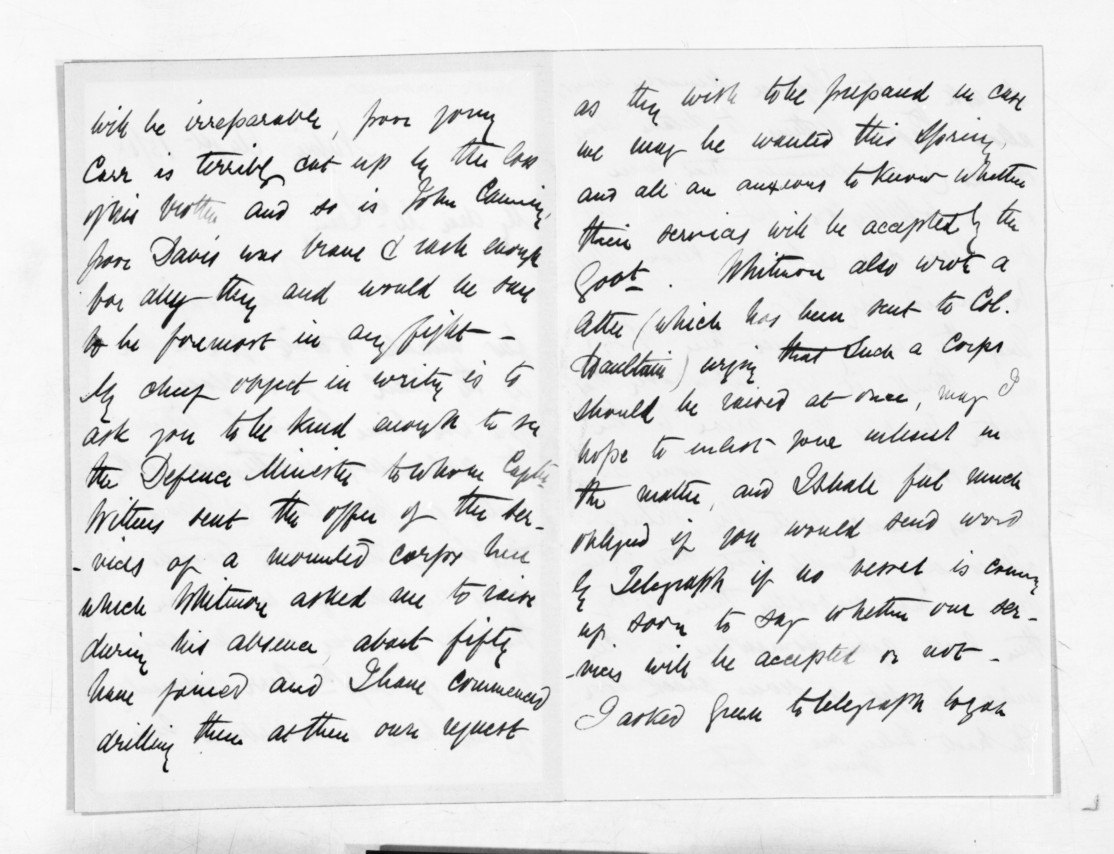 will be irreparable, poor young
Carr is terribly cut up by the loss
of his brother and so is John Canning,
poor Davis was brave & rash enough
for any thing and would be sure
to be foremost in any fight –
My chief object in writing is to
ask you to be kind enough to see
the Defence Minister to whom Captn
Withers sent the offer of the ser-
-vices of a mounted corps here
which Whitmore asked me to raise
during his absence, about fifty
have joined and I have commenced
drilling them at their own request
as they wish to be prepared in case
we may be wanted this Spring,
and all are anxious to know whether
their services will be accepted by the
Govt. Whitmore also wrote a
letter (which has been sent to Col.
Haultain) urging that such a Corps
should be raised at once, may I
hope to enlist your interest in
the matter, and I shall feel much
obliged if you would send word
by Telegraph if no vessel is coming
up soon to say whether our ser-
-vices will be accepted or not –
I asked Green to telegraph to you